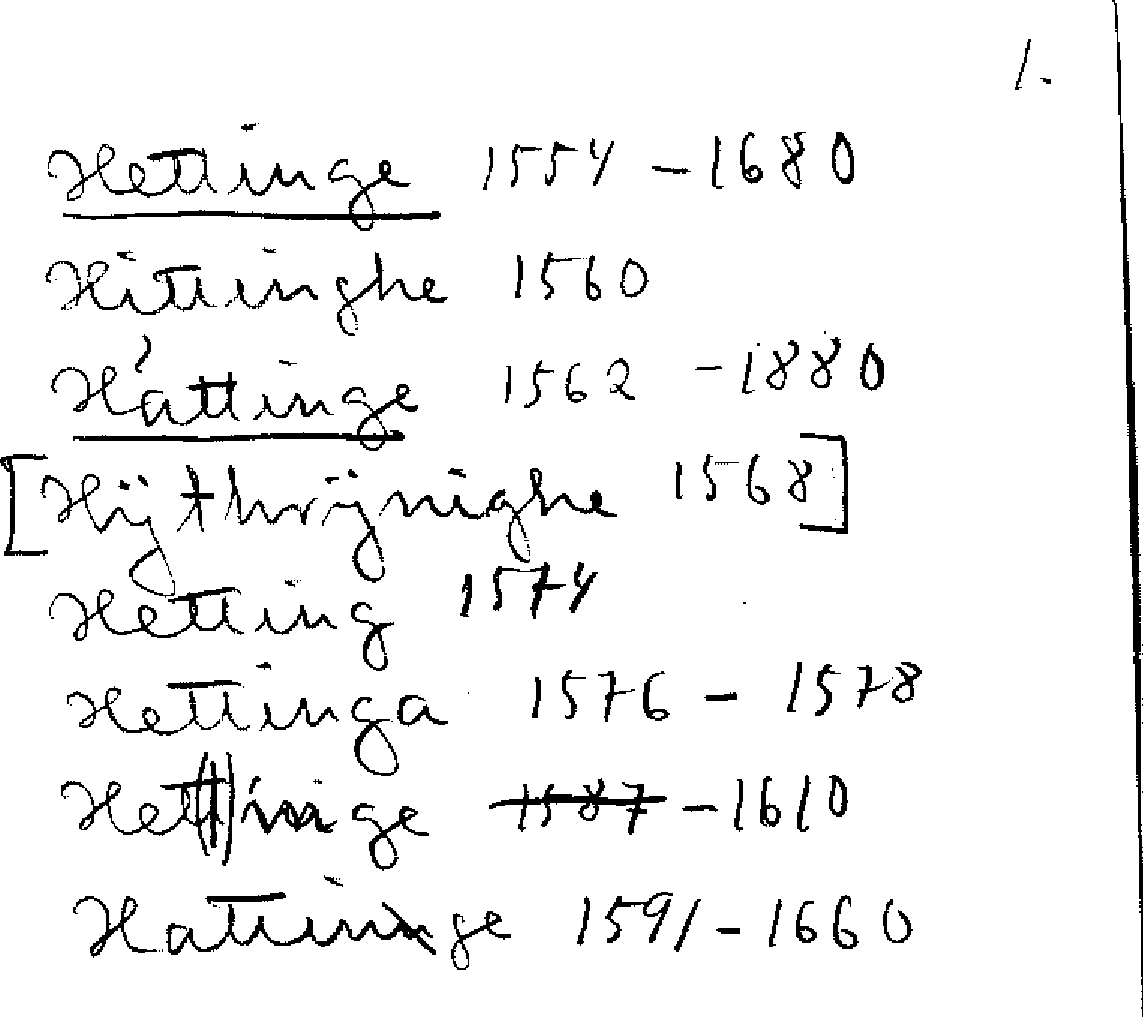 1.
Hettinge 1554 - 1680
Hittinghe 1560
Hättinge 1562 - 1880
[Hÿthrÿnighe 1568]
Hetting 1574
Hettinga 1576 - 1578
Het(t)inge 1587 - 1610
Hattinge 1591 - 1660